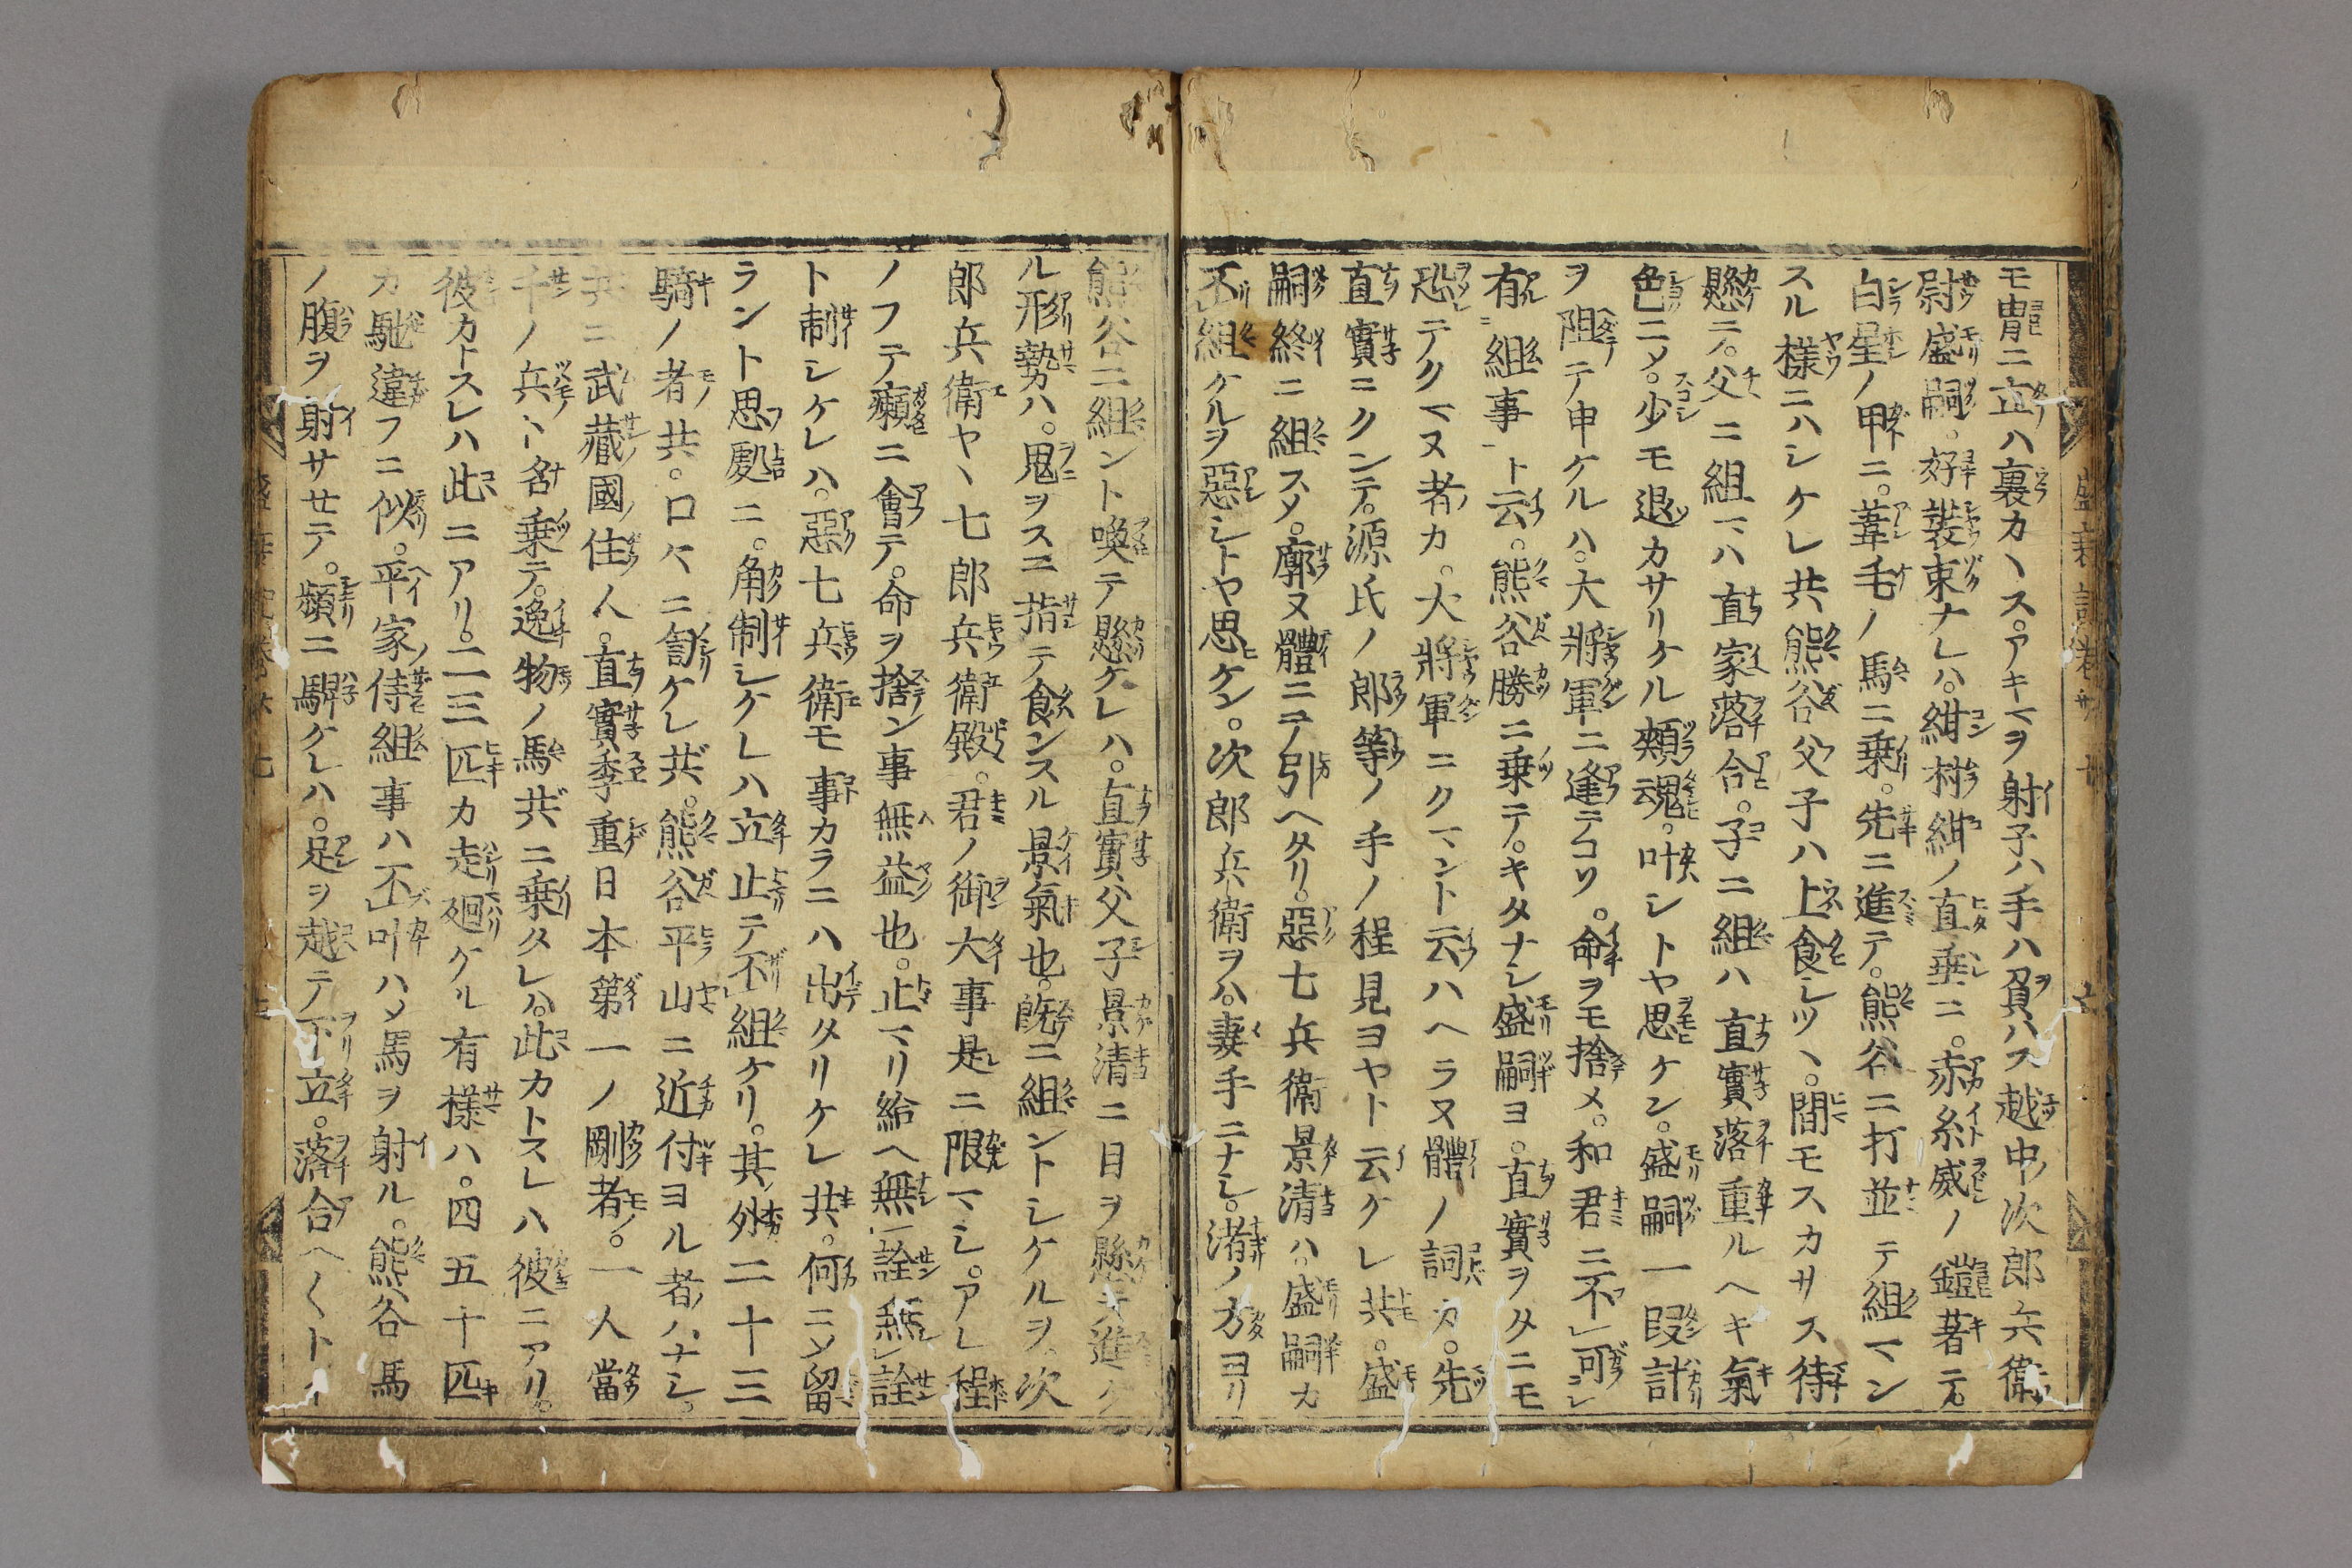 モ冑ニ立ハ裏カヽス。アキマヲ射子ハ手ハ負ハス越中次郎兵衛
尉盛嗣。好裝束ナレハ。紺村紺ノ直垂ニ。赤糸威ノ鎧著テ。
白星ノ甲ニ。葦毛ノ馬ニ乗。先ニ進テ。熊谷ニ打並テ組マン
スル様ニハシケレ共熊谷父子ハ上食シツヽ。間モスカサス待
懸テ。父ニ組マハ直家落合。子ニ組ハ直實落重ルヘキ氣
色ニメ。少モ退カサリケル頬魂。叶シトヤ思ケン。盛嗣一段計
ヲ阻テ申ケルハ。大將軍ニ逢テコソ。命ヲモ捨メ。和君ニ不可
有組事ト云。熊谷勝ニ乗テ。キタナシ盛嗣ヨ。直實ヲタニモ
恐テクマヌ者カ。大將軍ニクマント云ハヘラヌ體ノ詞カ。先
直實ニクンテ。源氏ノ郎等ノ手ノ程見ヨヤト云ケレ共。盛
嗣終ニ組スメ。廓ヌ體ニテ引ヘタリ。惡七兵衛景清ハ。盛嗣カ
不組ケルヲ惡シトヤ思ケン。次郎兵衛ヲハ。妻手ニナシ。渚ノ方ヨリ
熊谷ニ組ント喚テ懸ケレハ。直實父子景清ニ目ヲ懸テ進ケ
ル形勢ハ。鬼ヲスニ指テ食ンスル景氣也。既ニ組ントシケルヲ。次
郎兵衛ヤヽ七郎兵衛殿。君ノ御大事是ニ限マシ。アレ程
ノフテ癩ニ會テ。命ヲ捨ン事無益也。止マリ給ヘ無詮無詮
ト制シケレハ。惡七兵衛モ事カラニハ出タリケレ共。何ニソ留
ラント思處ニ。角制シケレハ立止テ不組ケリ。其外二十三
騎ノ者共。口々ニ訇ケレ共。熊谷平山ニ近付ヨル者ハナシ。
共ニ武藏國住人。直實季重日本第一ノ剛者。一人當
千ノ兵ニ名乗テ。逸物ノ馬共ニ乗タレハ。此カトスレハ彼ニアリ。
彼カトスレハ此ニアリ。二三匹カ走廻ケル有様ハ。四五十匹
カ馳違フニ似。平家侍組事ハ不叶ハメ馬ヲ射ル。熊谷馬
ノ腹ヲ射サセテ。頻ニ騂ケレハ。足ヲ越テ下立。落合ヘ〱ト